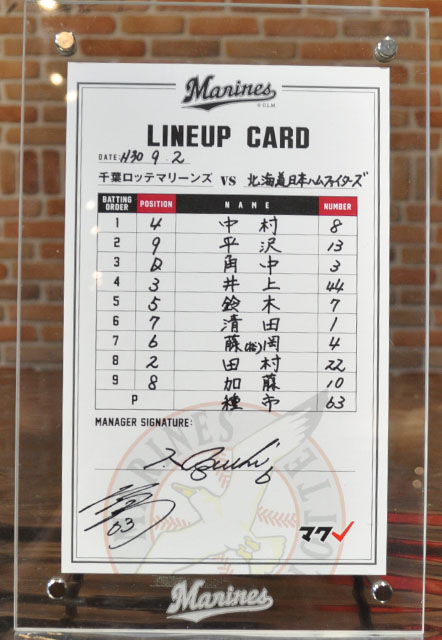 Marines
©C.L.M.
LINEUP CARD
DATE: H30 9.2
千葉ロッテマリーンズ VS 北海道日本ハムファイターズ
BATTING ORDER POSITION NAME NUMBER
1 4 中村 8
2 9 平沢 13
3 D 角中 3
4 3 井上 44
5 5 鈴木 7
6 7 清田 1
7 6 藤(裕)岡 4
8 2 田村 22
9 8 加藤 10
P 種市 63
MANAGER SIGNATURE:
63
マク
Marines